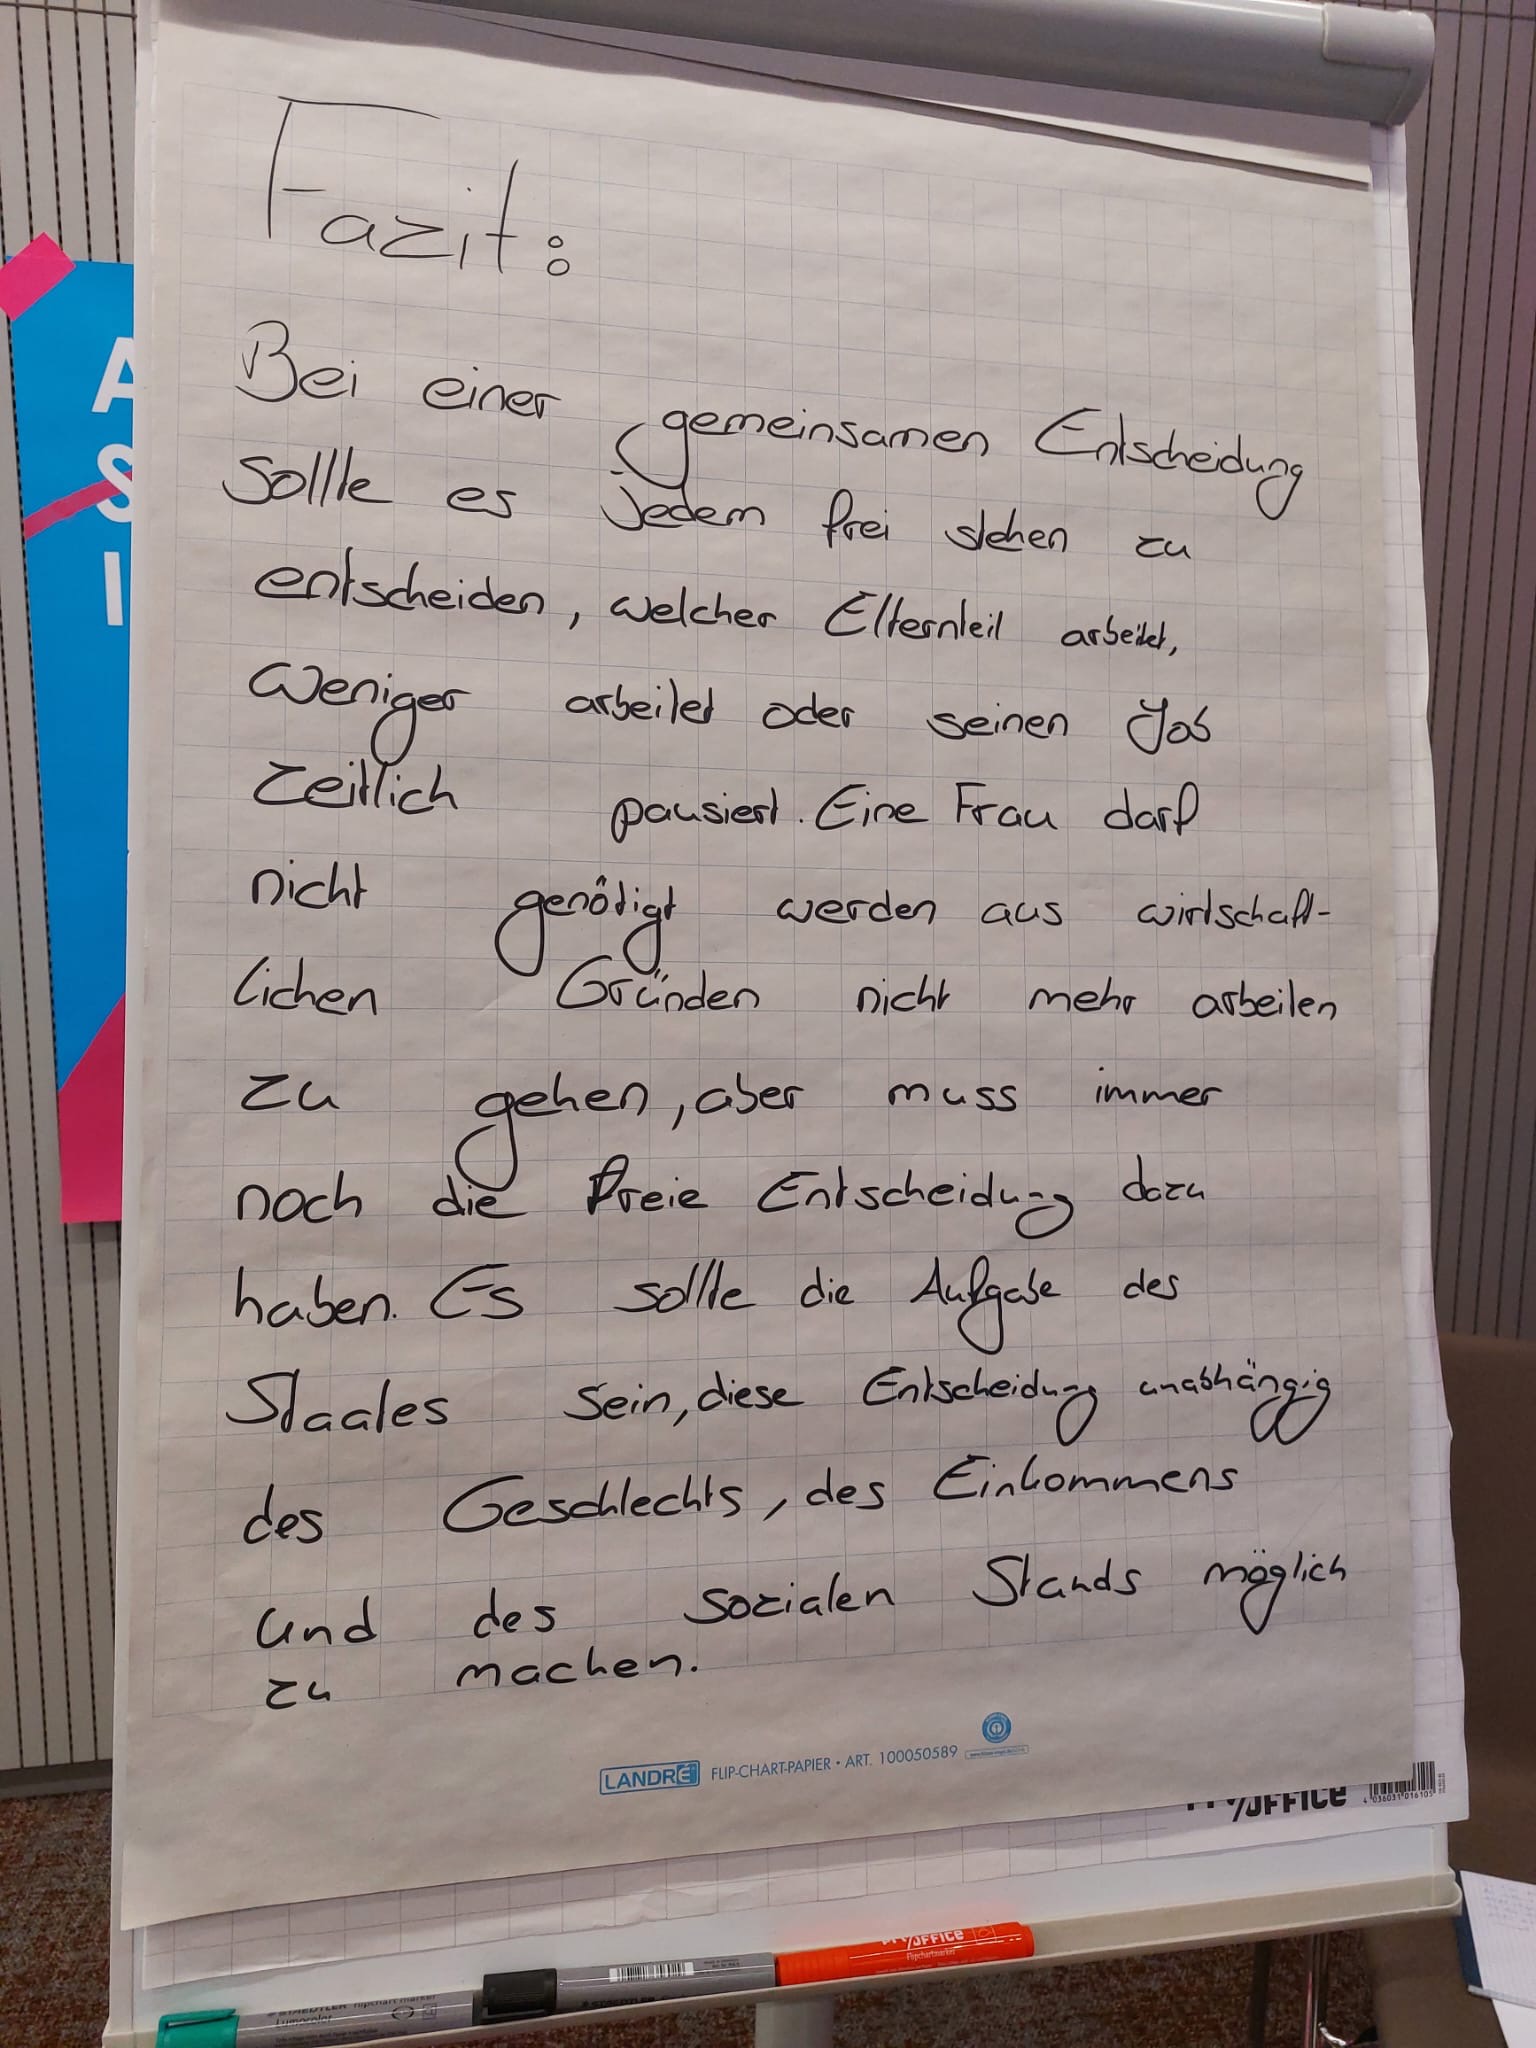 Fazit:
Bei einer gemeinsamen Entscheidung
sollte es jedem frei stehen zu
entscheiden, welcher Elternteil arbeitet,
weniger arbeitet oder seinen Job
zeitlich pausiert. Eine Frau darf
nicht genötigt werden aus wirtschaft-
lichen Gründen nicht mehr arbeiten
zu gehen, aber muss immer
noch die freie Entscheidung dazu
haben. Es sollte die Aufgabe des
Staates sein, diese Entscheidung unabhängig
des Geschlechts, des Einkommens
und des sozialen Stands möglich
zu machen.
LANDRÉ FLIP-CHART-PAPIER • ART. 100050589
OFFICE
4 036031 016105
A
S
I
OFFICE
Flipchartmarker
STAEDTLER flipchart marker
Lumocolor
STAEDTLER